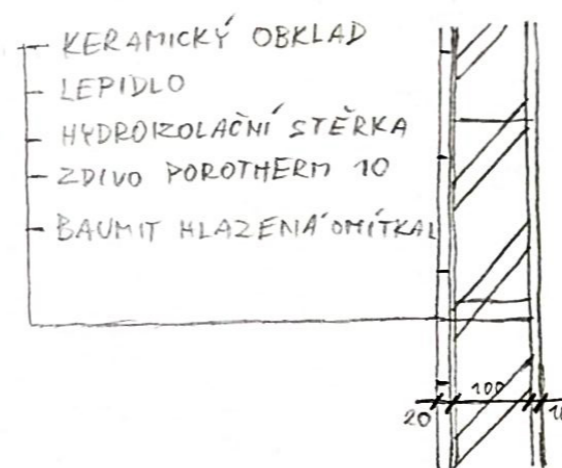 KERAMICKÝ OBKLAD
LEPIDLO
HYDROIZOLAČNÍ STĚRKA
ZDIVO POROTHERM 10
BAUMIT HLAZENÁ OMÍTKA
100
20